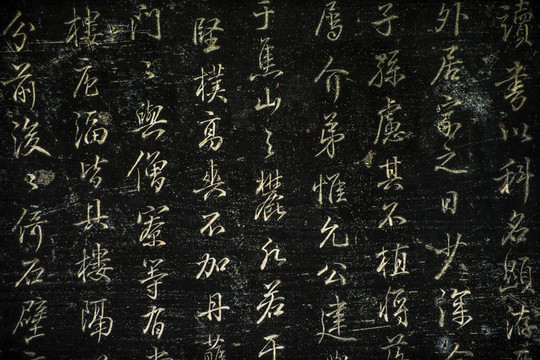 讀書以科名顯
外居家之日少深
子孫慮其不植將
屬介弟惟允公建
于焦山之麓
堅樸高爽不加丹
門之與僧寮等有
樓庀湢皆具樓隔
分前後之倚石壁